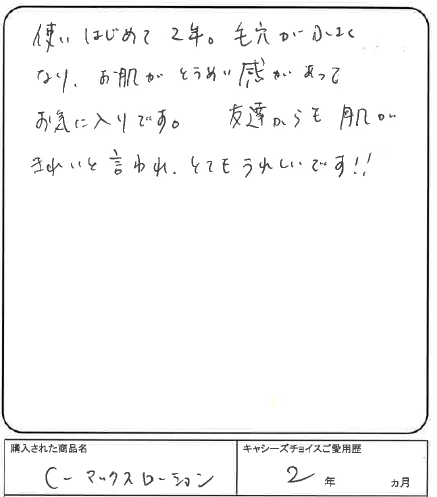 使いはじめて2年。毛穴が小さく
なり、お肌がとうめい感があって
お気に入りです。 友達からも肌が
きれいと言われ、とてもうれしいです!!
購入された商品名
キャシーズチョイスご愛用歴
C-マックスローション
2年 ヵ月